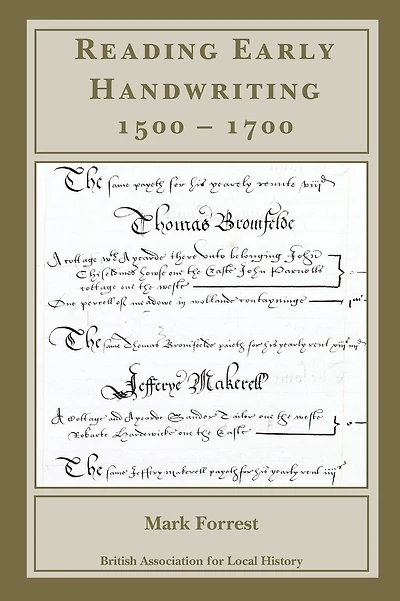 READING EARLY
HANDWRITING
1500 – 1700
The same payeth for his yearely rente viijd
Thomas Bromfelde
A cottage wth A yearde there unto belonging John
Chiseldines howse one the Easte John Parnells
cottage one the weste
One percell of meadowe in wollande contayninge
The same Thomas Bromfelde paieth for his yearly rent
Jefferye Makerell
A Cottage and A yearde Sander Tailor one the weste
Robarte Hardewicke one the Easte
The same Jeffery makerell payeth for his yearly rent iiijs
Mark Forrest
British Association for Local History